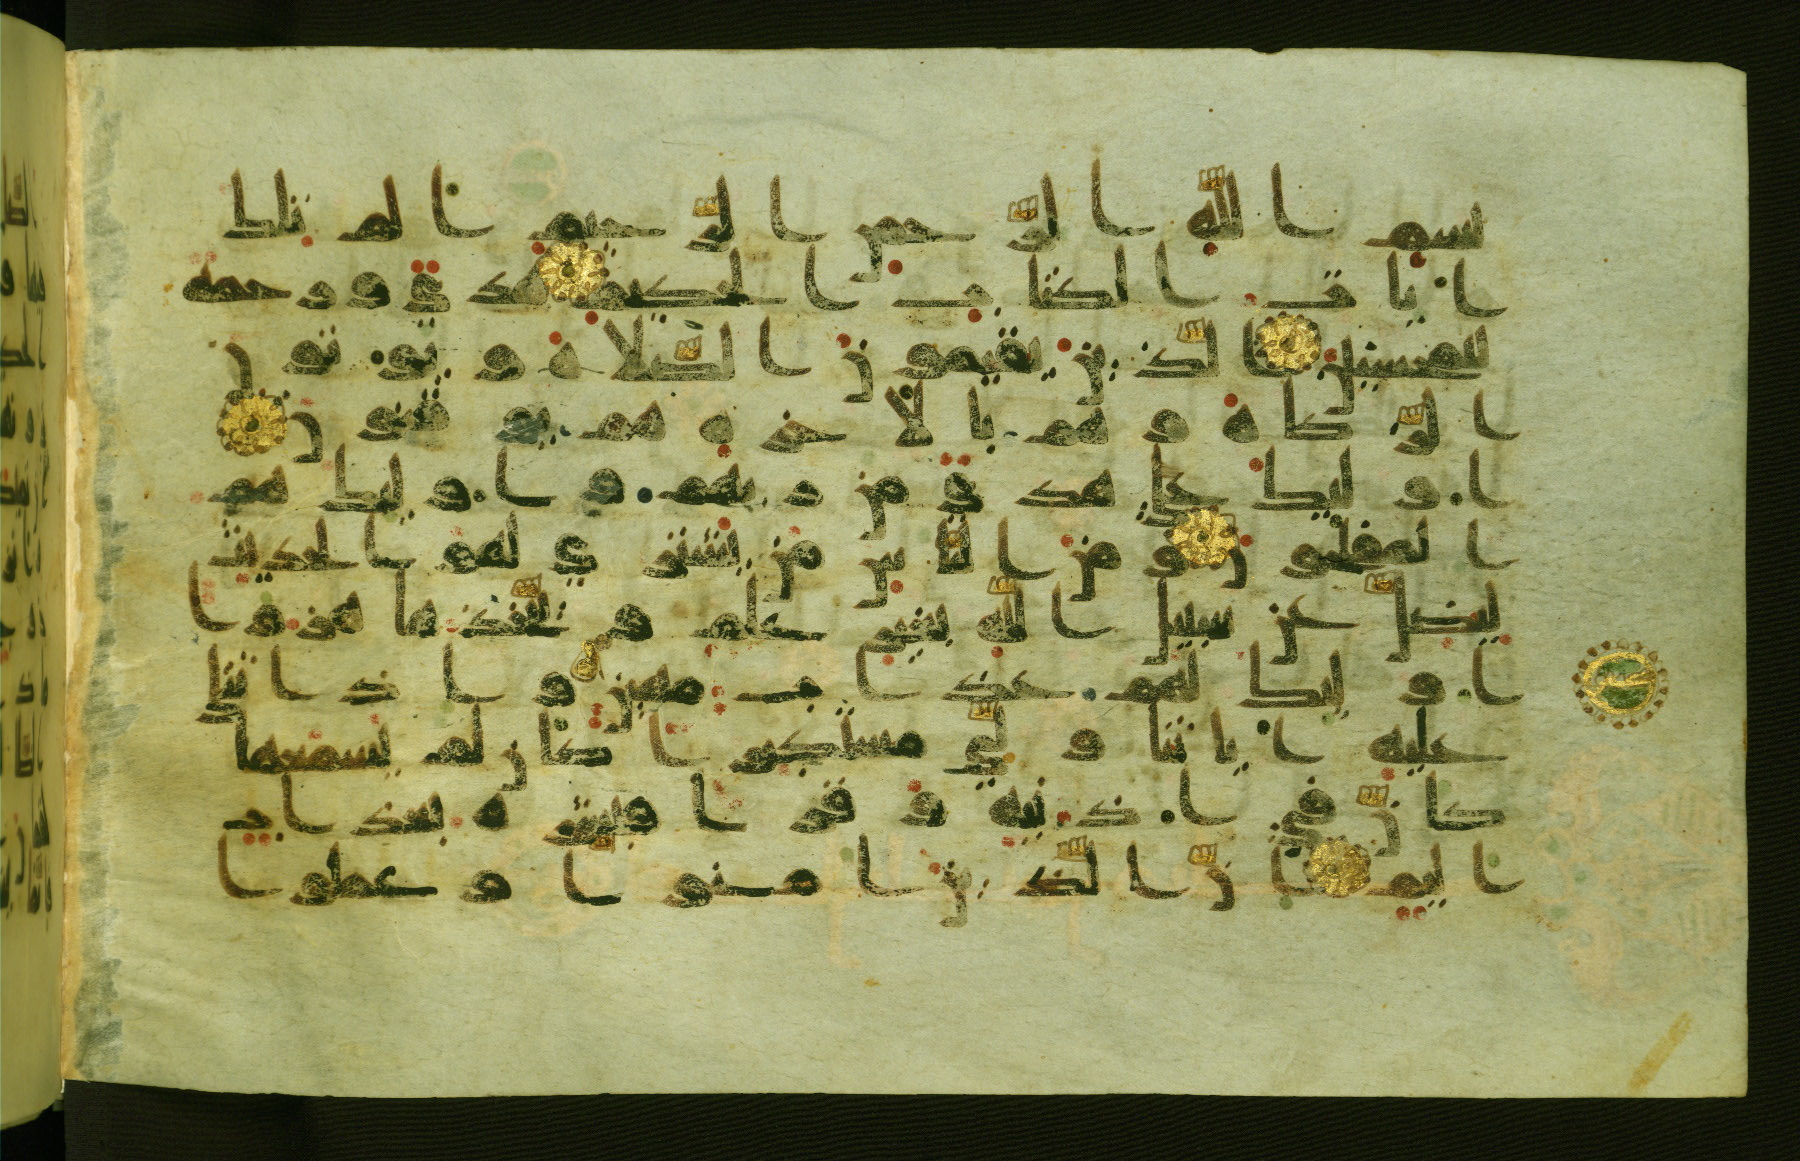 بسم الله الرحمن الرحيم الم تلك
ايات الكتاب الحكيم هدى ورحمة
للمحسنين الذين يقيمون الصلاة ويوتون
الزكاة وهم بالاخرة هم يوقنون
اوليك على هدى من ربهم واوليك هم
المفلحون ومن الناس من يشتري لهو الحديث
ليضل عن سبيل الله بغير علم ويتخذها هزوا
اوليك لهم عذاب مهين واذا تتلى
عليه اياتنا ولى مستكبرا كان لم يسمعها
كان في اذنيه وقرا فبشره بعذاب
اليم ان الذين امنوا وعملوا